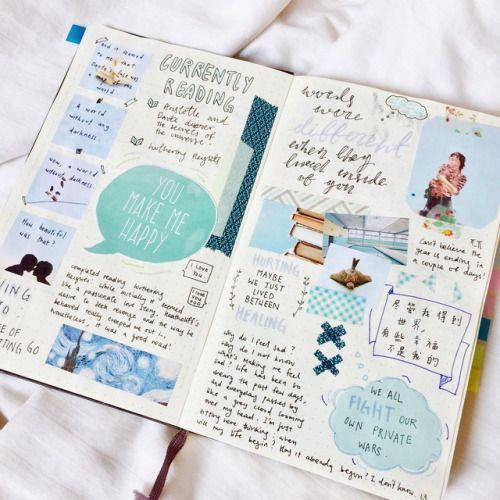 and it seemed
to me that
Dante's face was
a map of the
world
A world
without any
darkness
Wow, a world
without darkness
How beautiful
was that?
CURRENTLY
READING
Aristotle and
Dante discover
the secrets of
the universe
Wuthering Heights
YOU
MAKE ME
HAPPY
I LOVE
YOU
completed reading Wuthering
Heights! While initially it seemed
like a passionate love story, Heathcliff's
desire for revenge and the way he
behaved really creeped me out...
Nonetheless, it was a good read!
TO
OF
GO
words
were
different
when they
lived inside
of you
HURTING
MAYBE
WE JUST
LIVED
BETWEEN
HEALING
Can't believe the
year is ending in
a couple of days!
尽管我得到
世界,
有些幸福
不是我的
why do I feel so
sad? I do not know
what's making me feel
Life has been so
dreary the past few days,
and everyday passed by
like a grey cloud looming
over my head. I'm just
sitting here thinking, when
will my life begin; has it already begun? I don't know.
WE ALL
FIGHT OUR
OWN PRIVATE
WARS.